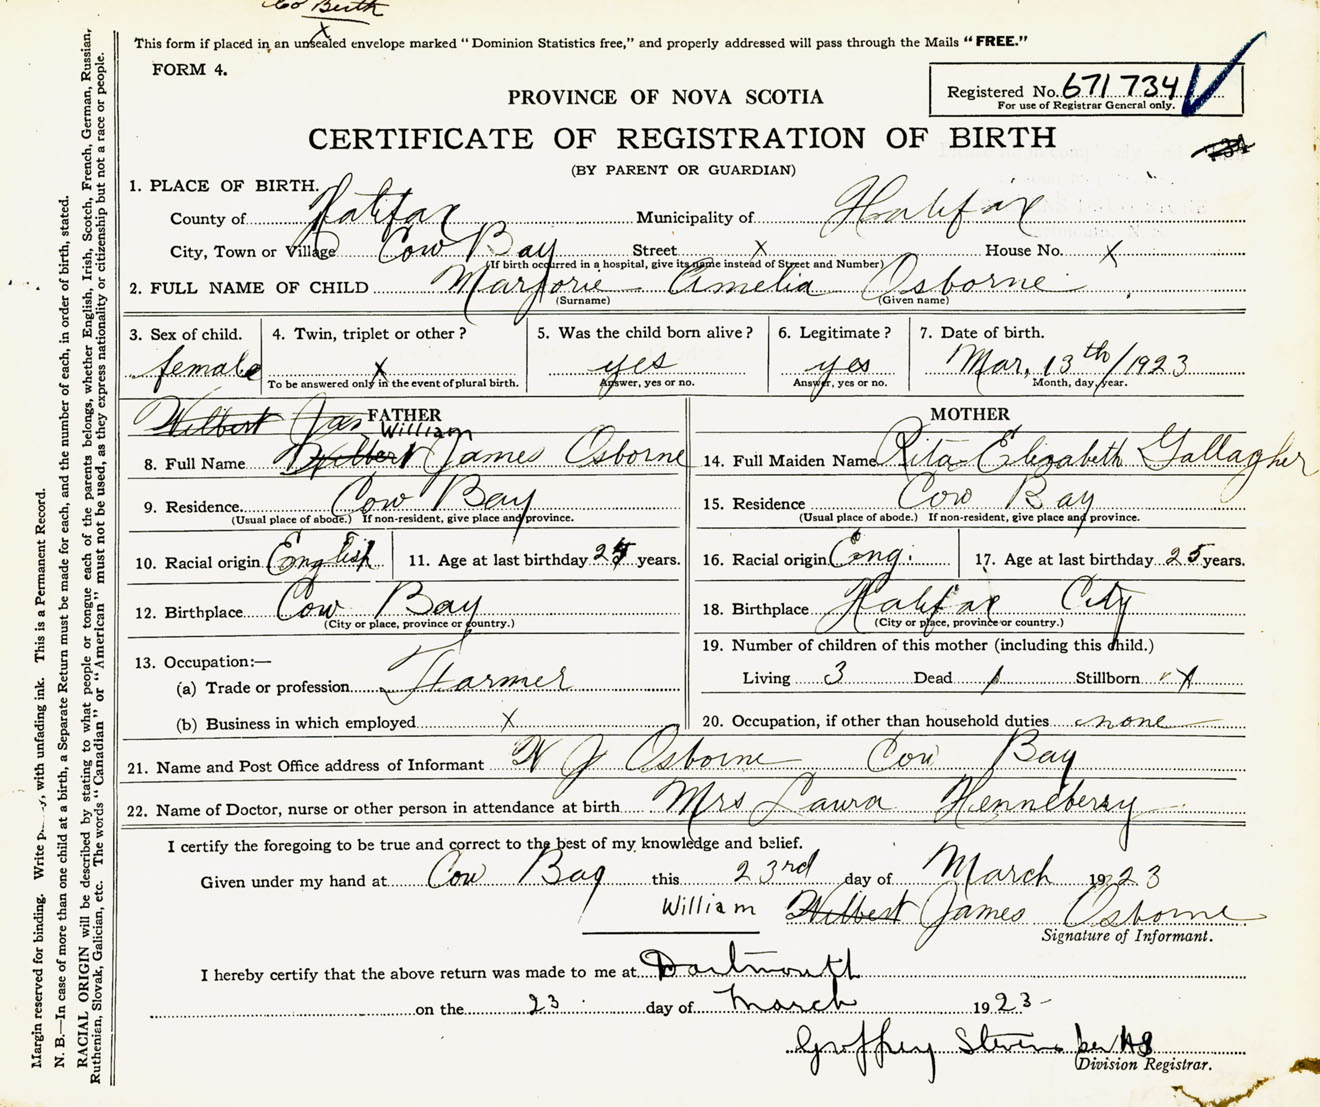 Co Birth
X
This form if placed in an unsealed envelope marked "Dominion Statistics free," and properly addressed will pass through the Mails "FREE."
FORM 4.
Registered No. 671734
For use of Registrar General only.
PROVINCE OF NOVA SCOTIA
CERTIFICATE OF REGISTRATION OF BIRTH
(BY PARENT OR GUARDIAN)
1. PLACE OF BIRTH.
County of Halifax Municipality of Halifax
City, Town or Village Cow Bay Street X House No. X
(If birth occurred in a hospital, give its name instead of Street and Number)
2. FULL NAME OF CHILD Marjorie Amelia Osborne
(Surname) (Given name)
3. Sex of child. 4. Twin, triplet or other? 5. Was the child born alive? 6. Legitimate? 7. Date of birth.
female X yes yes Mar, 13th/1923
To be answered only in the event of plural birth. Answer, yes or no. Answer, yes or no. Month, day, year.
Wilbert Jas FATHER
William
8. Full Name Wilbert James Osborne
9. Residence. Cow Bay
(Usual place of abode.) If non-resident, give place and province.
10. Racial origin English 11. Age at last birthday 24 years.
12. Birthplace Cow Bay
(City or place, province or country.)
13. Occupation:—
(a) Trade or profession Farmer
(b) Business in which employed X
MOTHER
14. Full Maiden Name Rita Elizabeth Gallagher
15. Residence Cow Bay
(Usual place of abode.) If non-resident, give place and province.
16. Racial origin Eng. 17. Age at last birthday 25 years.
18. Birthplace Halifax City
(City or place, province or country.)
19. Number of children of this mother (including this child.)
Living 3 Dead 1 Stillborn X
20. Occupation, if other than household duties none
21. Name and Post Office address of Informant W J Osborne Cow Bay
22. Name of Doctor, nurse or other person in attendance at birth Mrs Laura Henneberry
I certify the foregoing to be true and correct to the best of my knowledge and belief.
Given under my hand at Cow Bay this 23rd day of March 1923
William Wilbert James Osborne
Signature of Informant.
I hereby certify that the above return was made to me at Dartmouth
on the 23 day of March 1923
Geoffrey Stevens per HS
Division Registrar.
Margin reserved for binding. Write with unfading ink. This is a Permanent Record.
N. B.—In case of more than one child at a birth, a Separate Return must be made for each, and the number of each, in order of birth, stated.
RACIAL ORIGIN will be described by stating to what people or tongue each of the parents belongs, whether English, Irish, Scotch, French, German, Russian,
Ruthenian, Slovak, Galician, etc. The words "Canadian" or "American" must not be used, as they express nationality or citizenship but not a race or people.